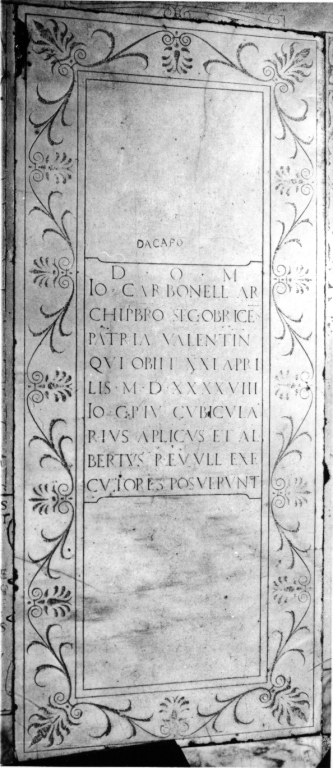 DACAPO
D · O · M
IO CARBONELL AR
CHIPBRO SEGOBRICE
PATRIA VALENTIN
QVI OBIIT XXI APRI
LIS · M · D XXXXVIII
IO CUBICULA
RIVS APLICVS ET AL
BERTVS REVVLL EXE
CVTORES POSVERVNT